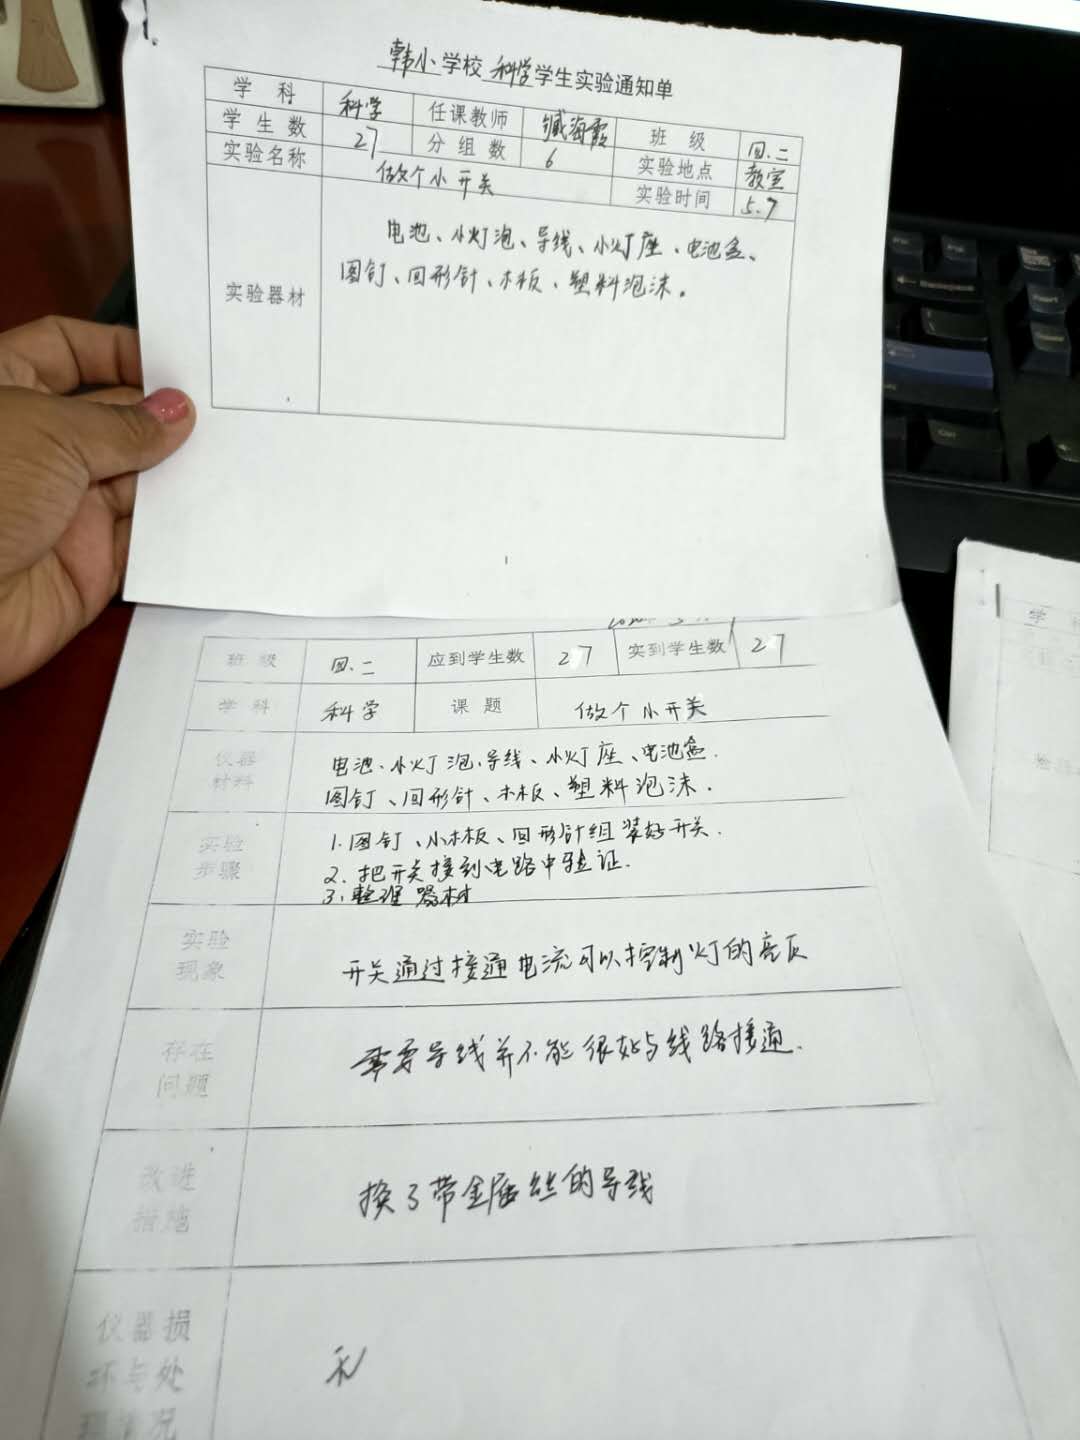 韩小学校科学学生实验通知单
学 科 科学 任课教师 臧海霞 班 级 四.二
学生数 27 分组数 6 实验地点 教室
实验名称 做个小开关 实验时间 5.7
实验器材 电池、小灯泡、导线、小灯座、电池盒、
图钉、回形针、木板、塑料泡沫。
班 级 四.二 应到学生数 27 实到学生数 27
学 科 科学 课 题 做个小开关
仪器
材料
电池、小灯泡、导线、小灯座、电池盒.
图钉、回形针、木板、塑料泡沫.
实验
步骤
1.图钉、小木板、回形针组装好开关.
2.把开关接到电路中验证.
3.整理器材
实验
现象
开关通过接通电流可以控制灯的亮灭
存在
问题
导线并不能很好与线路接通.
改进
措施
换了带金属丝的导线
仪器损
坏与处
理情况
无
学 科